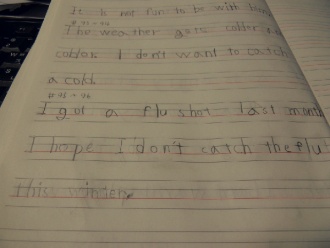 It is not fun to be with
# 93 - 94
The weather gets colder and
colder. I don't want to catch
a cold.
# 95 - 96
I got a flu shot last month
I hope I don't catch the flu
this winter.